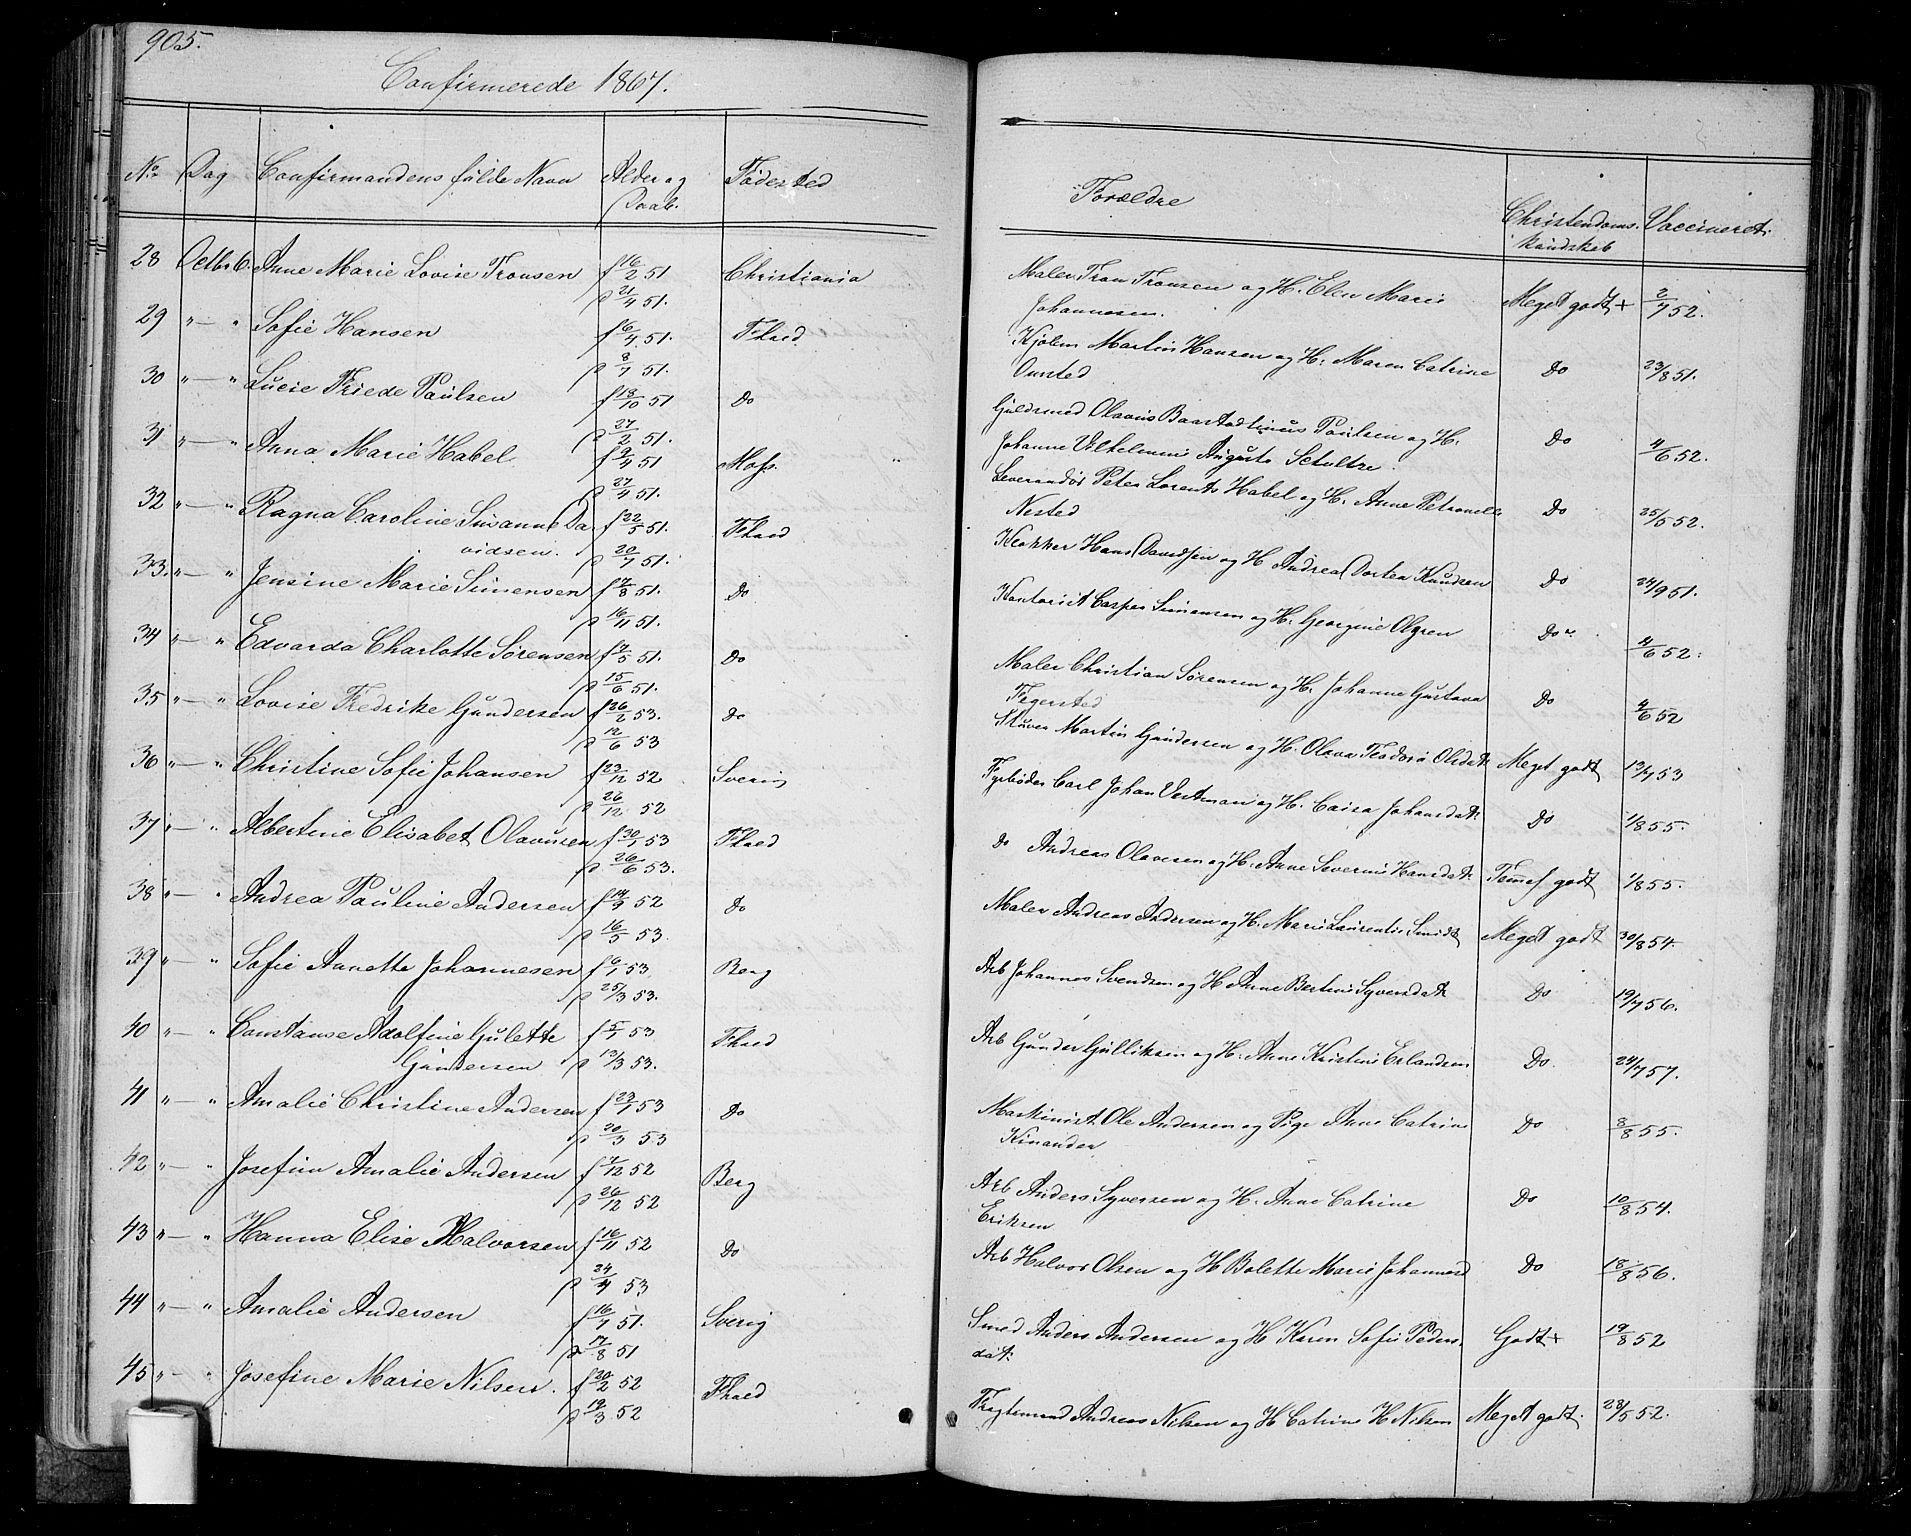 905.
Confirmerede 1867.
No Dag Confirmandens fulde Navn Alder og Daab. Fødested Forældre Christendoms- kundskab Vaccineret.
28 Octbr 6. Anne Marie Lovise Tronsen f 16/2 51 Christiania Maler Tron Tronsen og H. Elen Marie Meget godt + 2/7 52.
p 21/4 51. Johannesen.
29 " — " Sofie Hansen f 6/4 51. Fhald Kjølem Martin Hansen og H. Maren Catrine Do 23/8 51.
p 8/7 51. Onsted
30 " — " Lucie Friede Paulsen f 18/10 51 Do Guldsmed Olavus Baastad Linus Paulsen og H. Do 4/6 52.
p 27/2 51. Johanne Vilhelmine Augusta Schultze.
31 " — " Anna Marie Habel f 9/4 51 Moss. Leverandør Peter Lorents Habel og H. Anne Petronelle Do 25/5 52.
p 27/4 51. Nested
32 " — " Ragna Caroline Susanne Da- f 22/5 51. Fhald Klokker Hans Davidsen og H Andrea Dortea Knudsen Do 24/9 51.
vidsen. p 20/7 51.
33. " — " Jensine Marie Simensen f 7/8 51. Do Kontorist Casper Simensen og H. Georgine Olgren Do " 4/6 52.
p 16/11 51.
34 " — " Edvarda Charlotte Sørensen f 7/5 51. Do Maler Christian Sørensen og H. Johanne Gustava Do 4/6 52
p 15/6 51. Fegersted
35 " — " Lovise Fredrike Gundersen f 26/2 53. Do Stuver Martin Gundersen og H. Olava Teodora Olsdatr Meget godt 13/7 53
p 12/6 53
36 " — " Christine Sofie Johansen f 23/12 52 Sverig Fyrbøder Carl Johan Vestman og H. Caisa Johansdatr Do 1/8 55.
p 26/12 52
37 " — " Albertine Elisabet Olavesen f 30/1 53 Fhald Do Andreas Olavesen og H. Anne Severine Hansdatr Temf godt 1/8 55.
p 26/6 53.
38 " — " Andrea Pauline Andersen f 14/9 52 Do Maler Andreas Andersen og H. Marie Laurentie Smidt Meget godt 30/8 54.
p 16/5 53.
39 " — " Sofie Annette Johannesen f 6/1 53 Berg Arb Johannes Svendsen og H Anne Bertine Syversdatr Do 19/7 56.
p 25/3 53.
40 " — " Constanse Adolfine Gulette f 5/1 53 Fhald Arb Gunder Gulliksen og H. Anne Kristine Erlandsen Do 24/7 57.
Gundersen p 13/3 53.
41 " — " Amalie Christine Andersen f 23/1 53 Do Maskinist Ole Andersen og Pige Anne Catrine Do 8/8 55.
p 20/3 53 Kinander
42 " — " Josefine Amalie Andersen f 7/12 52 Berg Arb Anders Syversen og H. Anne Catrine Do 10/8 54.
p 26/12 52 Eriksen
43 " — " Hanna Elise Halvorsen f 16/11 52 Do Arb Halvor Olsen og H Bolette Marie Johannesd Do 18/8 56.
p 24/4 53
44 " — " Amalie Andersen f 16/7 51. Sverig Smed Anders Andersen og H Karen Sofie Peders- Godt + 19/8 52
p 17/8 51 dat.
45 " — " Josefine Marie Nilsen. f 20/2 52 Fhald Fragtemand Andreas Nilsen og H Catrine H Nilsen Meget godt. 28/5 52.
p 19/3 52